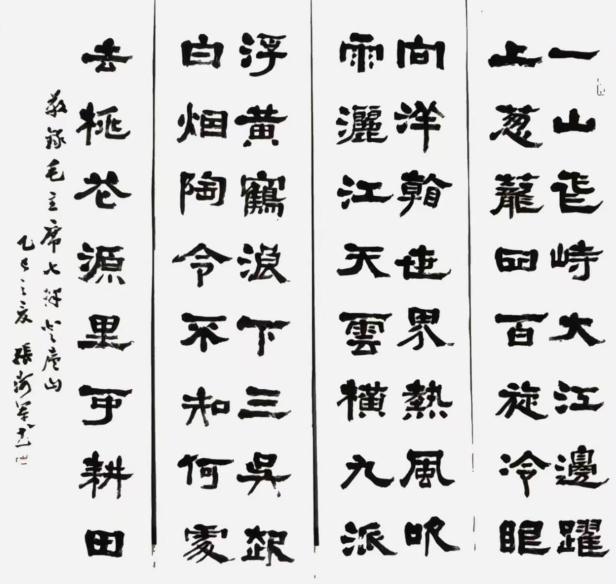 一山飛峙大江邊躍
上葱蘢四百旋冷眼
向洋看世界熱風吹
雨灑江天雲橫九派
浮黃鶴浪下三吳起
白烟陶令不知何處
去桃花源里可耕田
敬錄毛主席七律登廬山
乙巳之夏 張海軍書